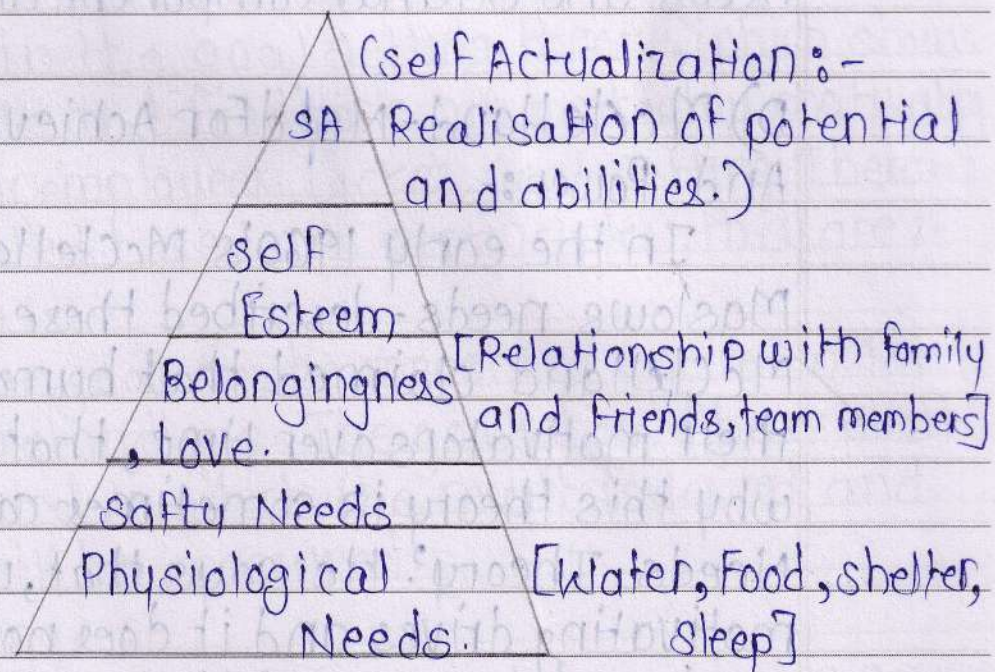 (self Actualization :-
SA Realisation of potential
and abilities.)
self
Esteem
Belongingness [Relationship with family
and friends, team members]
, love.
Safty Needs
Physiological [Water, Food, shelter,
Needs. sleep]